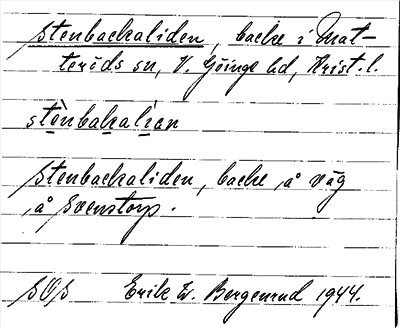 Stenbackaliden, backe i Mat-
teröds sn, V. Göinge hd, Krist. l.
stènbakalian
Stenbackaliden, backe å väg
å Svenstorp.
SOS Erik W. Bergenrud 1944.